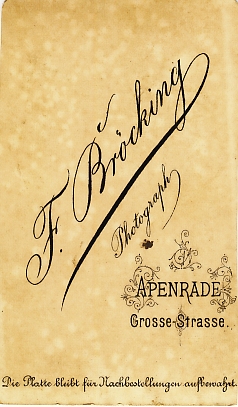 F. Bröcking
Photograph
APENRADE
Grosse-Strasse.
Die Platte bleibt für Nachbestellungen aufbewahrt.